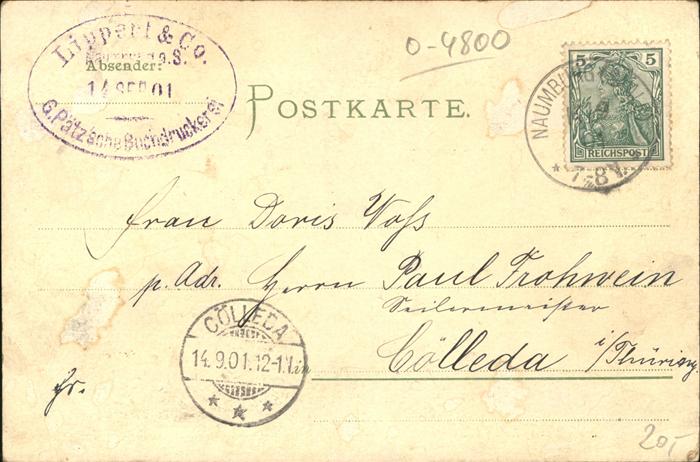 Lippert & Co.
Naumburg a.S.
Absender:
14 SEP. 01
G. Pätz'sche Buchdruckerei
0-4800
POSTKARTE.
5 5
REICHSPOST
NAUMBURG
* 7-8 V.
Frau Doris Voss
p. Adr. Herrn Paul Frohwein
Seilermeister
Cölleda i/Thüring
CÖLLEDA
14.9.01.12-1.N
in
fr.
20,-